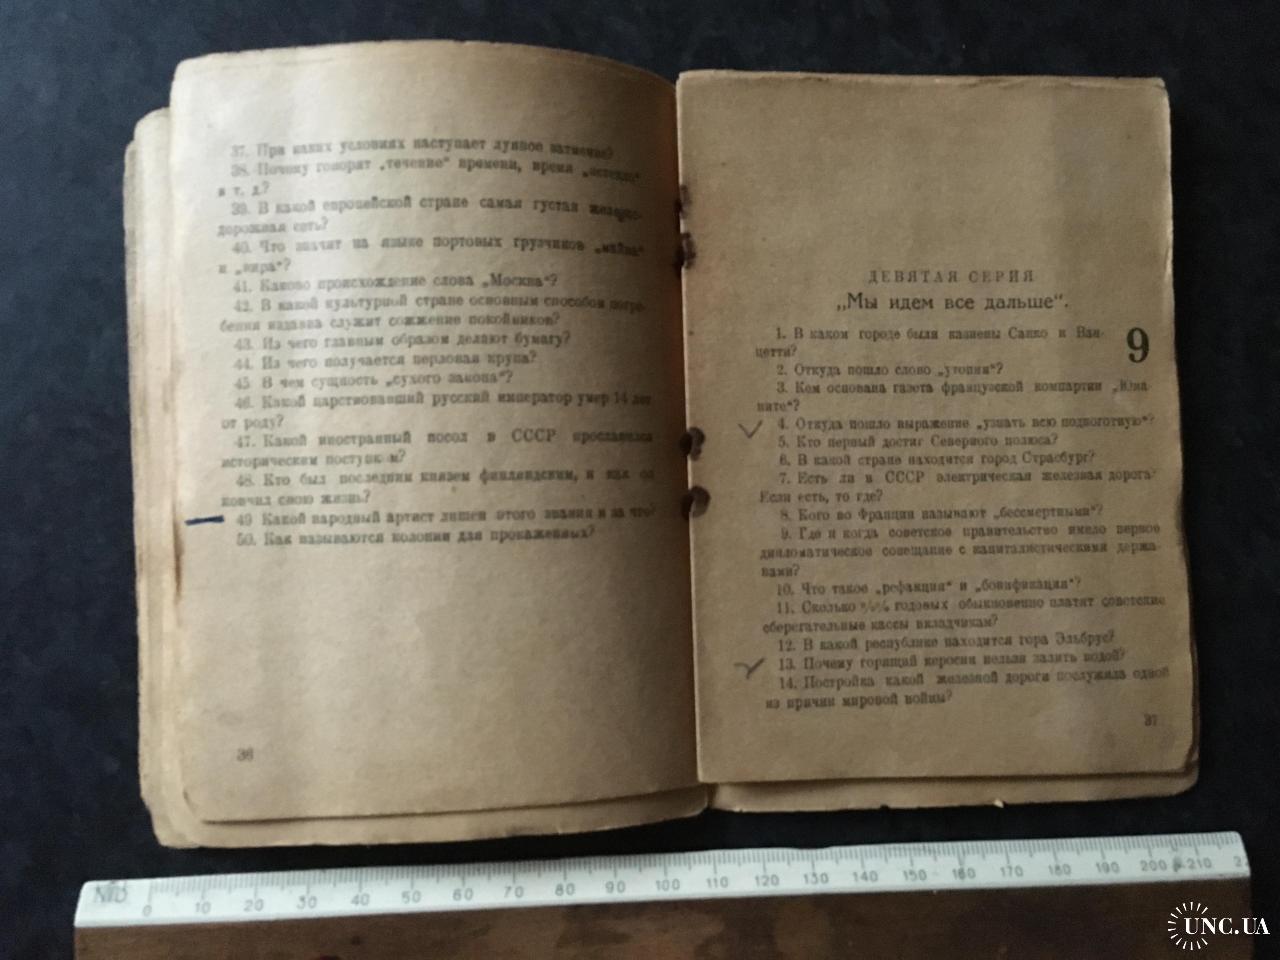 37. При каких условиях наступает лунное затмение?
38. Почему говорят „течение“ времени, время „истекло“
и т. д.?
39. В какой европейской стране самая густая железно-
дорожная сеть?
40. Что значит на языке портовых грузчиков „майна“
и „вира“?
41. Каково происхождение слова „Москва“?
42. В какой культурной стране основным способом погре-
бения издавна служит сожжение покойников?
43. Из чего главным образом делают бумагу?
44. Из чего получается перловая крупа?
45. В чем сущность „сухого закона“?
46. Какой царствовавший русский император умер 14 лет
от роду?
47. Какой иностранный посол в СССР прославился
историческим поступком?
48. Кто был последним князем финляндским, и как он
кончил свою жизнь?
49. Какой народный артист лишен этого звания и за что?
50. Как называются колонии для прокаженных?
36
ДЕВЯТАЯ СЕРИЯ
„Мы идем все дальше“.
9
1. В каком городе были казнены Сакко и Ван-
цетти?
2. Откуда пошло слово „утопия“?
3. Кем основана газета французской компартии „Юма-
ните“?
4. Откуда пошло выражение „узнать всю подноготную“?
5. Кто первый достиг Северного полюса?
6. В какой стране находится город Страсбург?
7. Есть ли в СССР электрическая железная дорога?
Если есть, то где?
8. Кого во Франции называют „бессмертными“?
9. Где и когда советское правительство имело первое
дипломатическое совещание с капиталистическими держа-
вами?
10. Что такое „рефакция“ и „бонификация“?
11. Сколько %% годовых обыкновенно платят советские
сберегательные кассы вкладчикам?
12. В какой республике находится гора Эльбрус?
13. Почему горящий керосин нельзя залить водой?
14. Постройка какой железной дороги послужила одной
из причин мировой войны?
37
0 10 20 30 40 50 60 70 80 90 100 110 120 130 140 150 160 170 180 190 200 210 22
UNC.UA